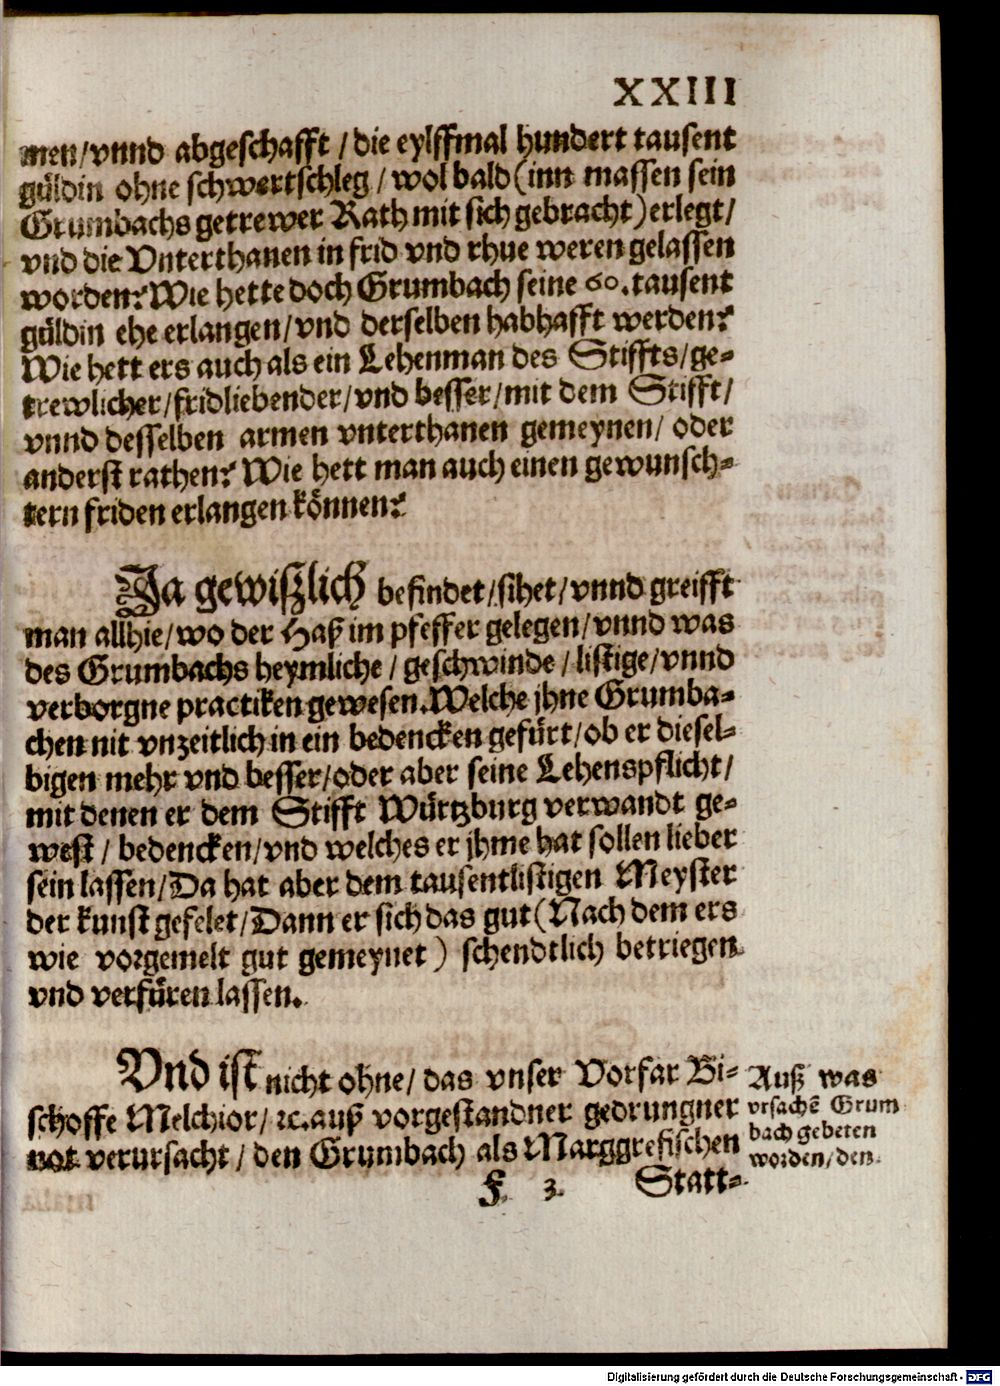 XXIII
men/vnnd abgeschafft/die eylffmal hundert tausent
güldin ohne schwertschleg/wol bald(inn massen sein
Grumbachs getrewer Rath mit sich gebracht)erlegt/
vnd die Vnterthanen in frid vnd rhue weren gelassen
worden? Wie hette doch Grumbach seine 60. tausent
güldin ehe erlangen/vnd derselben habhafft werden?
Wie hett ers auch als ein Lehenman des Stiffts/ge-
trewlicher/fridliebender/vnd besser/mit dem Stifft/
vnnd desselben armen vnterthanen gemeynen/oder
anderst rathen? Wie hett man auch einen gewunsch-
tern friden erlangen können?
Ja gewißlich befindet/sihet/vnnd greifft
man allhie/wo der Haß im pfeffer gelegen/vnnd was
des Grumbachs heymliche/geschwinde/listige/vnnd
verborgne practiken gewesen. Welche jhne Grumba-
chen nit vnzeitlich in ein bedencken gefürt/ob er diesel-
bigen mehr vnd besser/oder aber seine Lehenspflicht/
mit denen er dem Stifft Würtzburg verwandt ge-
west/bedencken/vnd welches er jhme hat sollen lieber
sein lassen/Da hat aber dem tausentlistigen Meyster
der kunst gefelet/Dann er sich das gut(Nach dem ers
wie vorgemelt gut gemeynet) schendtlich betriegen
vnd verfüren lassen.
Vnd ist nicht ohne/das vnser Vorfar Bi-
schoffe Melchior/ꝛc. auß vorgestandner gedrungner
not verursacht/den Grumbach als Marggrefischen
Auß was
vrsachē Grum
bach gebeten
worden/den
F 3 Statt-
Digitalisierung gefördert durch die Deutsche Forschungsgemeinschaft - DFG